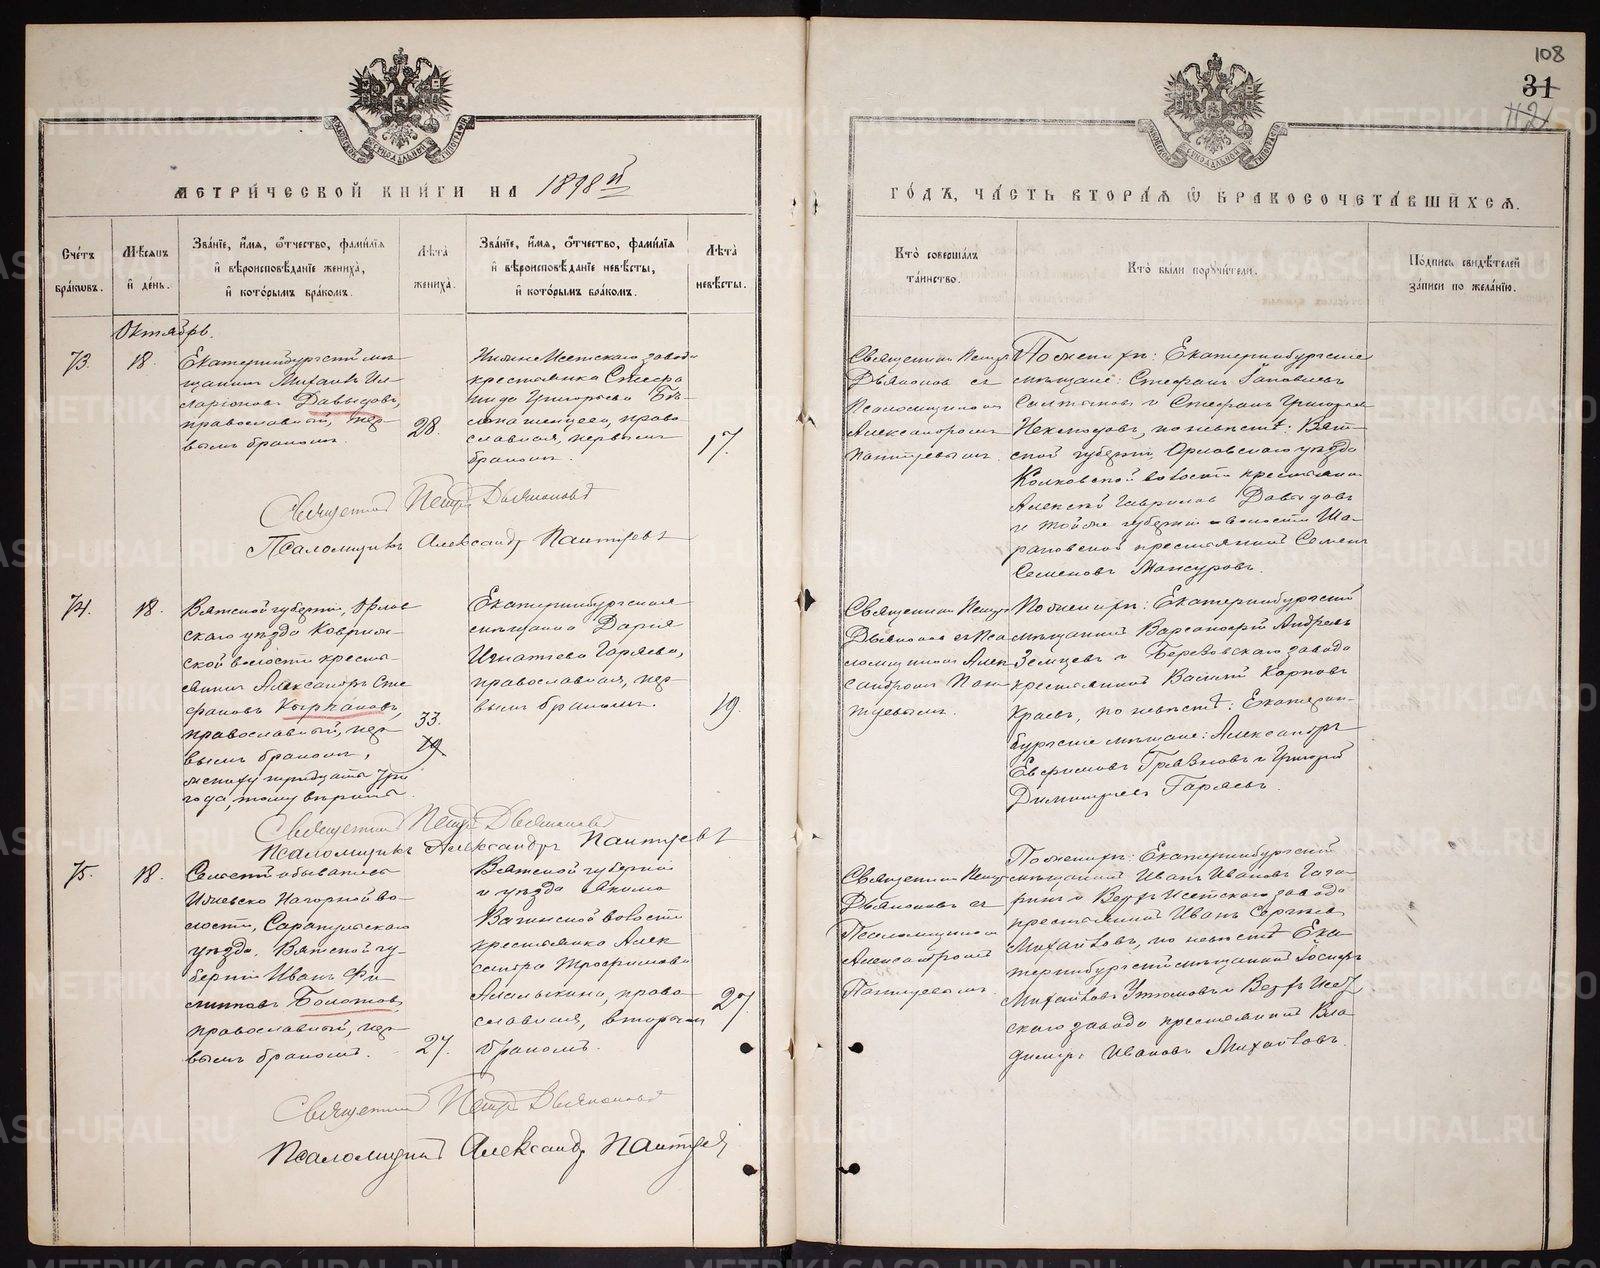 108
31
112
МЕТРИ́ЧЕСКОЙ КНИ́ГИ НА 1898й
ГО́ДЪ, ЧА́СТЬ ВТОРА́Я Ѽ БРАКОСОЧЕТА́ВШИХСЯ.
Сче́тъ бра́ковъ.
Мѣ́сяцъ и де́нь.
Зва́нїе, и́мя, о́тчество, фами́лїя и вѣроисповѣ́данїе жениха̀, и кото́рымъ бра́комъ.
Лѣ́та жениха̀.
Зва́нїе, и́мя, о́тчество, фами́лїя и вѣроисповѣ́данїе невѣ́сты, и кото́рымъ бра́комъ.
Лѣ́та невѣ́сты.
Кто̀ соверша́лъ та́инство.
Кто̀ бы́ли поручи́тели.
По́дпись свидѣ́телей за́писи по жела́нїю.
Октябрь.
73.
18.
Екатеринбургскій мѣ-
щанинъ Михаилъ Ил-
ларіоновъ Давыдовъ,
православный, пер-
вымъ бракомъ.
28.
Нижне Исетскаго завода
крестьянка Стефа
нида Григорьева
православная, первымъ
бракомъ.
17.
Священникъ Петръ
Дьяконовъ съ
Псаломщикомъ
Александромъ
Пантуевымъ.
По женихѣ: Екатеринбургскіе
мѣщане: Стефанъ
Салтановъ и Стефанъ Григорьевъ
по невѣстѣ: Вят-
ской губерніи, Орловскаго уѣзда
волости крестьянинъ
Алексѣй Гавриловъ Давыдовъ
и той же губерніи волости Ша-
рановской крестьянинъ Семенъ
Семеновъ Мансуровъ.
Священникъ Петръ Дьяконовъ
Псаломщикъ Александръ Пантуевъ
74.
18.
Вятской губерніи, Орлов
скаго уѣзда
ской волости кресть-
янинъ Александръ Сте
фановъ
православный, пер-
вымъ бракомъ,
жениху тридцать три
года, тому вѣрить.
33.
19
Екатеринбургская
мѣщанка Дарія
Игнатіева Гаряева,
православная, пер-
вымъ бракомъ.
19.
Священникъ Петръ
Дьяконовъ съ Пса
ломщикомъ Алек
сандромъ Пан-
туевымъ.
По женихѣ: Екатеринбургскій
мѣщанинъ Варсанофій Андреевъ
Земцевъ и Березовскаго завода
крестьянинъ Василій Карповъ
по невѣстѣ: Екатерин-
бургскіе мѣщане: Александръ
Евфимовъ и Григорій
Димитріевъ Гаряевъ.
Священникъ Петръ Дьяконовъ
Псаломщикъ Александръ Пантуевъ
75.
18.
Сельскій обыватель
Ижевско Нагорной во-
лости, Сарапульскаго
уѣзда, Вятской гу-
берніи Иванъ Фи
липповъ Болотовъ,
православный, пер-
вымъ бракомъ.
27.
Вятской губерніи
и уѣзда
волости
крестьянка Алек
сандра Трофимова
право-
славная, вторымъ
бракомъ.
27.
Священникъ Петръ
Дьяконовъ съ
Псаломщикомъ
Александромъ
Пантуевымъ.
По женихѣ: Екатеринбургскій
мѣщанинъ Иванъ Ивановъ Гага-
ринъ и Верхъ Исетскаго завода
крестьянинъ Иванъ Сергѣевъ
Михайловъ, по невѣстѣ Ека-
теринбургскій мѣщанинъ Іосифъ
Михайловъ Утюмовъ и Верхъ Исет
скаго завода крестьянинъ Вла-
димиръ Ивановъ Михайловъ.
Священникъ Петръ Дьяконовъ
Псаломщикъ Александръ Пантуевъ
METRIKI.GASO-URAL.RU